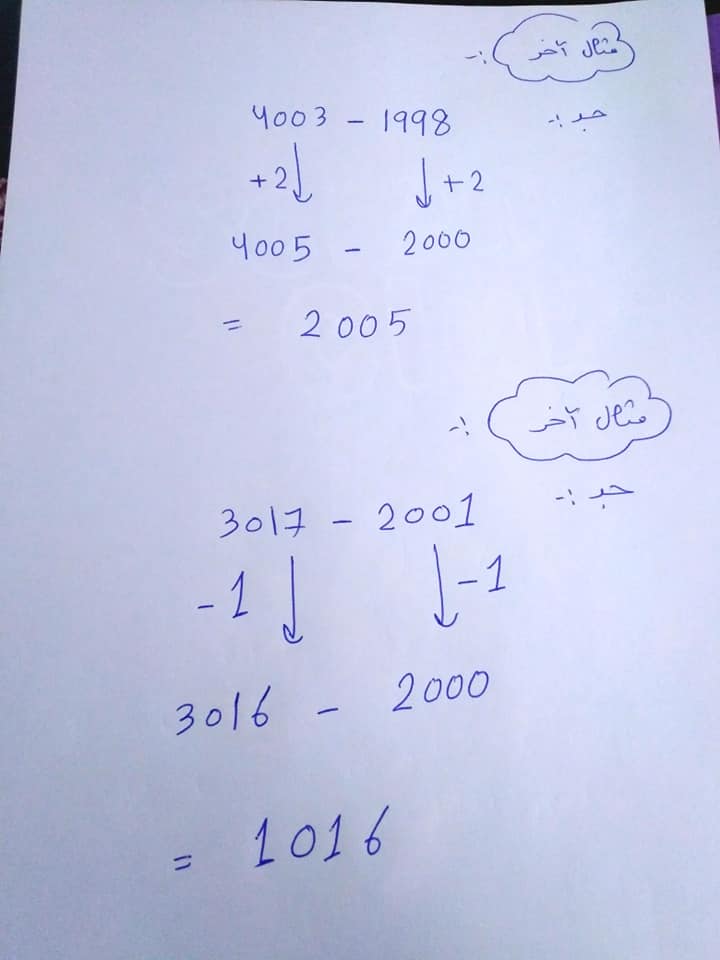 مثال آخر :-
جد :-
4003 - 1998
+2 +2
4005 - 2000
= 2005
مثال آخر :-
جد :-
3017 - 2001
-1 -1
3016 - 2000
= 1016